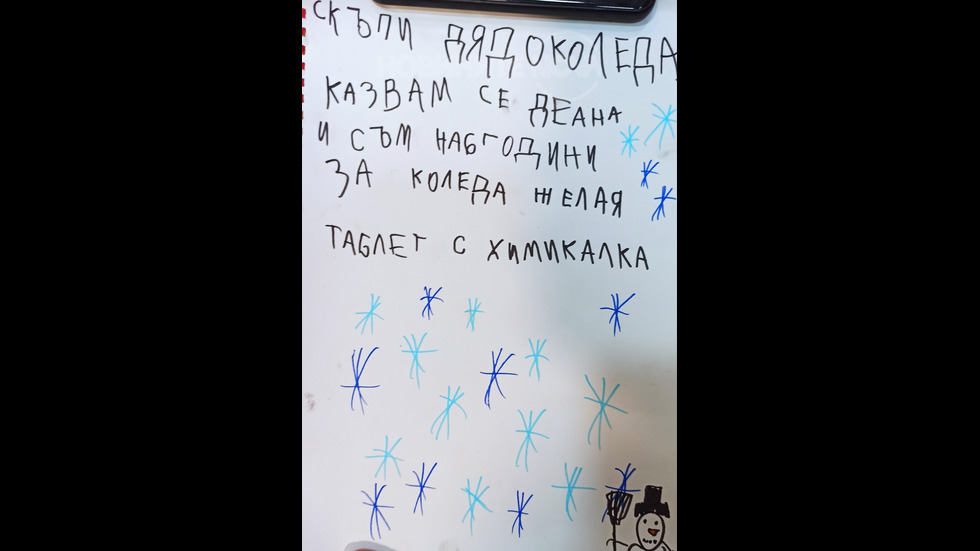 СКЪПИ ДЯДОКОЛЕДА
КАЗВАМ СЕ ДЕАНА
И СЪМ НАБГОДИНИ
ЗА КОЛЕДА ЖЕЛАЯ
ТАБЛЕТ С ХИМИКАЛКА